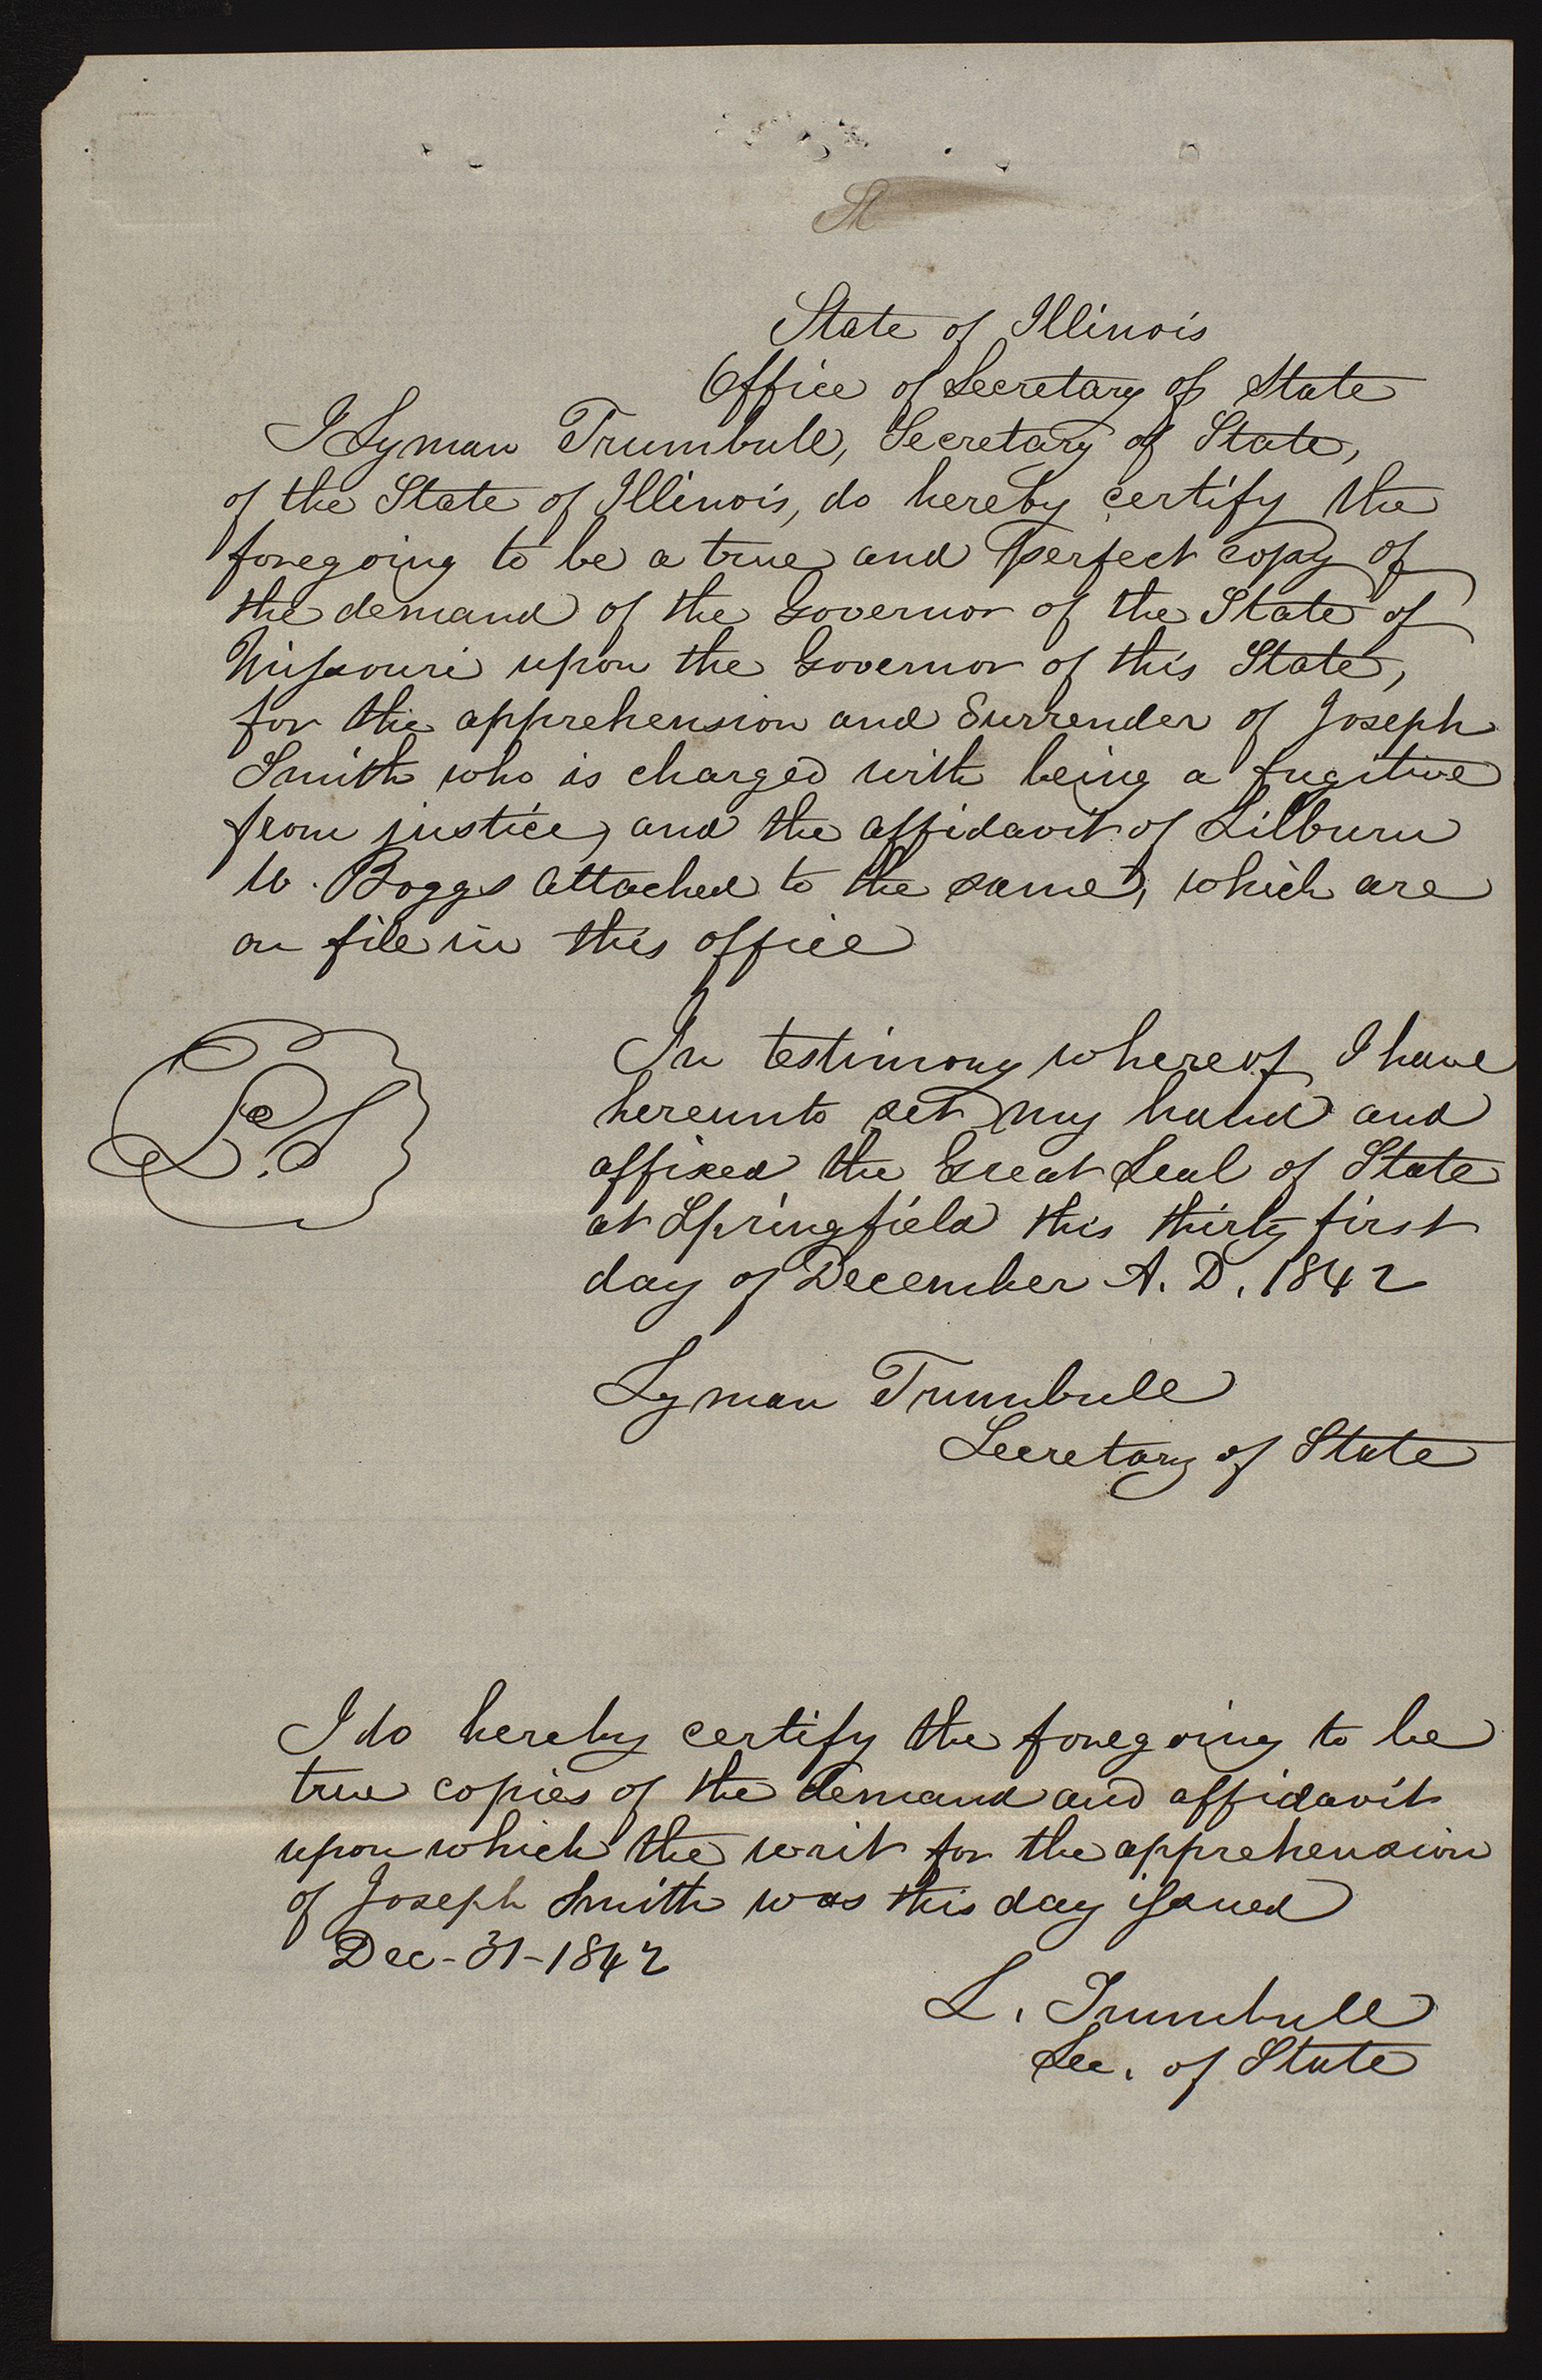 St
State of Illinois
Office of Secretary of State
I Lyman Trumbull, Secretary of State,
of the State of Illinois, do hereby certify the
foregoing to be a true and perfect copy of
the demand of the Governor of the State of
Missouri upon the Governor of this State,
for the apprehension and Surrender of Joseph
Smith who is charged with being a fugitive
from justice, and the affidavit of Lilburn
W. Boggs attached to the same, which are
on file in this office
In testimony whereof I have
hereunto set my hand and
affixed the Great Seal of State
L.S
at Springfield this thirty first
day of December A. D. 1842
Lyman Trumbull
Secretary of State
I do hereby certify the foregoing to be
true copies of the demand and affidavit
upon which the writ for the apprehension
of Joseph Smith was this day issued
Dec-31-1842
L. Trumbull
Sec. of State